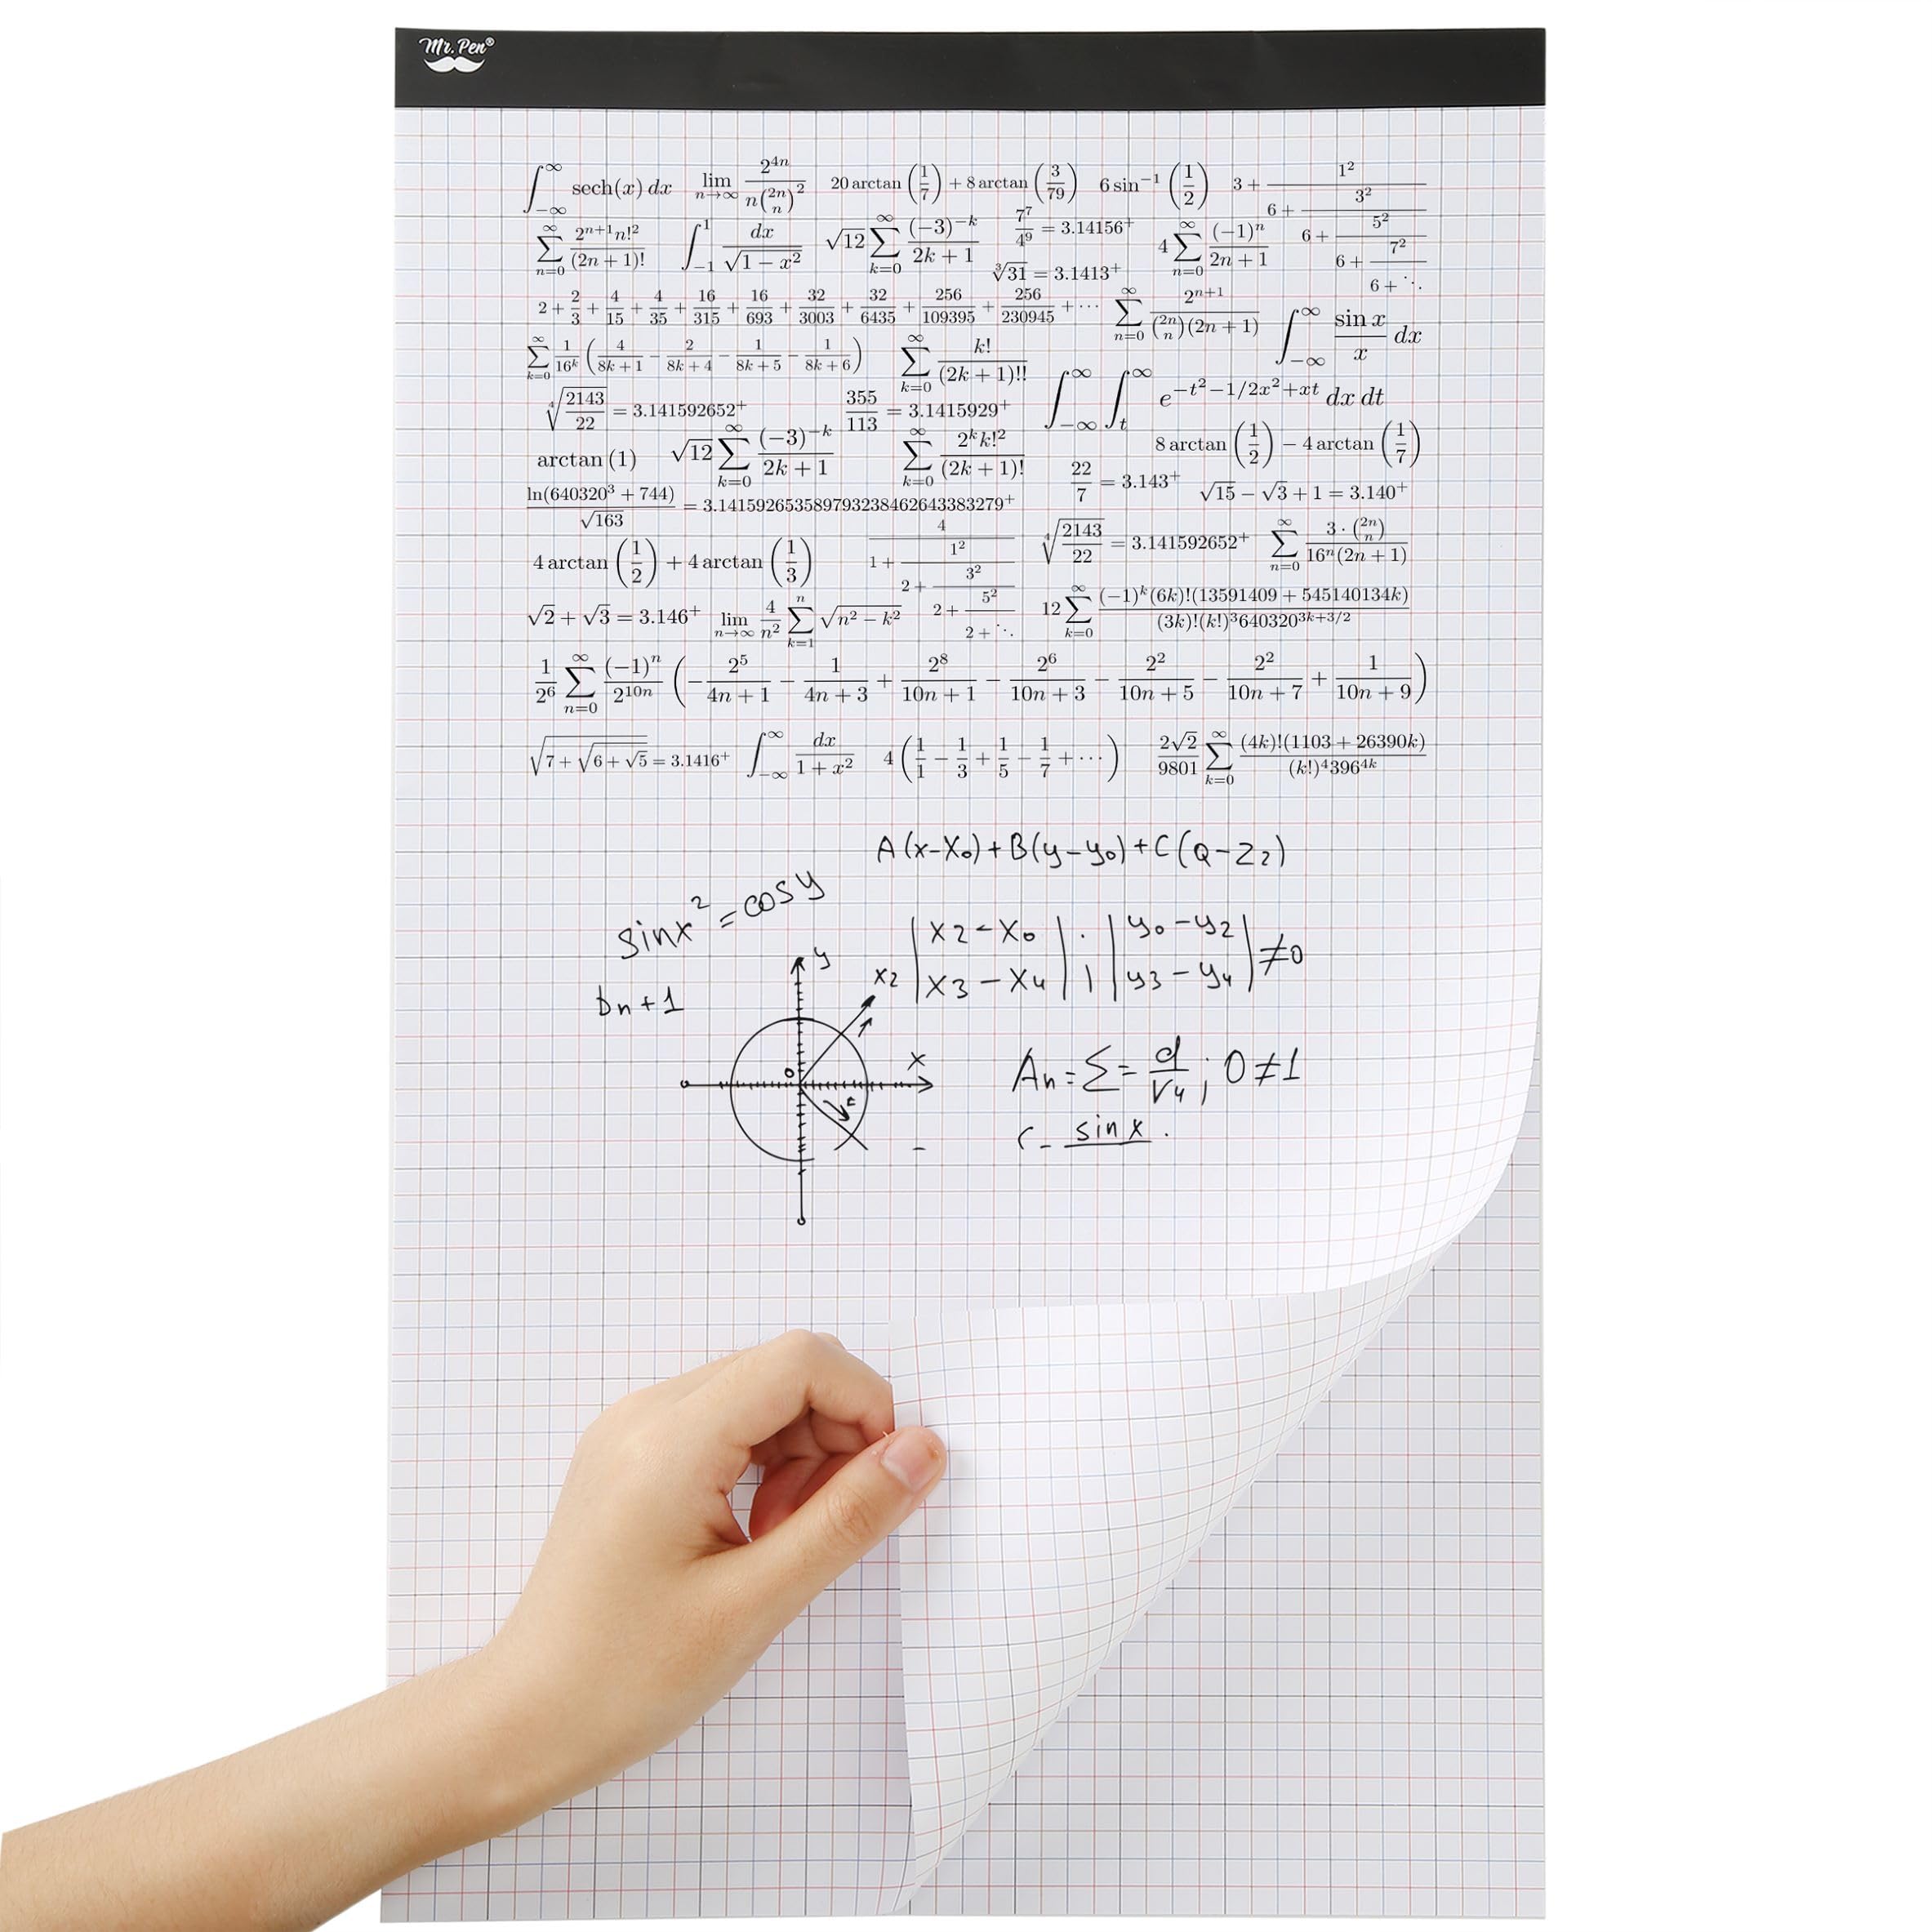 Mr. Pen®
∫_{-∞}^{∞} sech(x) dx   lim_{n→∞} 2^{4n}/(n\binom{2n}{n}^2)   20 arctan(1/7) + 8 arctan(3/79)   6 sin^{-1}(1/2)   3 + 1^2/(6 + 3^2/(6 + 5^2/(6 + 7^2/(6 + ⋱))))
∑_{n=0}^{∞} 2^{n+1}n!^2/(2n+1)!   ∫_{-1}^{1} dx/√(1 − x^2)   √12 ∑_{k=0}^{∞} (−3)^{−k}/(2k+1)   7^7/4^9 = 3.14156^+   4 ∑_{n=0}^{∞} (−1)^n/(2n+1)
∛31 = 3.1413^+
2 + 2/3 + 4/15 + 4/35 + 16/315 + 16/693 + 32/3003 + 32/6435 + 256/109395 + 256/230945 + ⋯   ∑_{n=0}^{∞} 2^{n+1}/(\binom{2n}{n}(2n+1))   ∫_{-∞}^{∞} sin x/x dx
∑_{k=0}^{∞} 1/16^k (4/(8k+1) − 2/(8k+4) − 1/(8k+5) − 1/(8k+6))   ∑_{k=0}^{∞} k!/(2k+1)!!
∜(2143/22) = 3.141592652^+   355/113 = 3.1415929^+   ∫_{-∞}^{∞} ∫_{t}^{∞} e^{−t^2−1/2x^2+xt} dx dt
arctan (1)   √12 ∑_{k=0}^{∞} (−3)^{−k}/(2k+1)   ∑_{k=0}^{∞} 2^k k!^2/(2k+1)!   8 arctan(1/2) − 4 arctan(1/7)
ln(640320^3 + 744)/√163 = 3.141592653589793238462643383279^+   22/7 = 3.143^+   √15 − √3 + 1 = 3.140^+
4 arctan(1/2) + 4 arctan(1/3)   4/(1 + 1^2/(2 + 3^2/(2 + 5^2/(2 + ⋱))))   ∜(2143/22) = 3.141592652^+   ∑_{n=0}^{∞} 3·\binom{2n}{n}/(16^n(2n+1))
√2 + √3 = 3.146^+   lim_{n→∞} 4/n^2 ∑_{k=1}^{n} √(n^2 − k^2)   12 ∑_{k=0}^{∞} (−1)^k(6k)!(13591409 + 545140134k)/((3k)!(k!)^3 640320^{3k+3/2})
1/2^6 ∑_{n=0}^{∞} (−1)^n/2^{10n} (−2^5/(4n+1) − 1/(4n+3) + 2^8/(10n+1) − 2^6/(10n+3) − 2^2/(10n+5) − 2^2/(10n+7) + 1/(10n+9))
√(7 + √(6 + √5)) = 3.1416^+   ∫_{-∞}^{∞} dx/(1 + x^2)   4(1/1 − 1/3 + 1/5 − 1/7 + ⋯)   2√2/9801 ∑_{k=0}^{∞} (4k)!(1103 + 26390k)/((k!)^4 396^{4k})
A(x-X₀)+B(y-y₀)+C(Q-Z₂)
sinx²=cosy
|x2-x₀| . |y₀-y₂|
|x3-x₄| 1 |y3-y₄| ≠0
y
x2
bn+1
x
0
An=Σ=d/√4; 0≠1
sinx